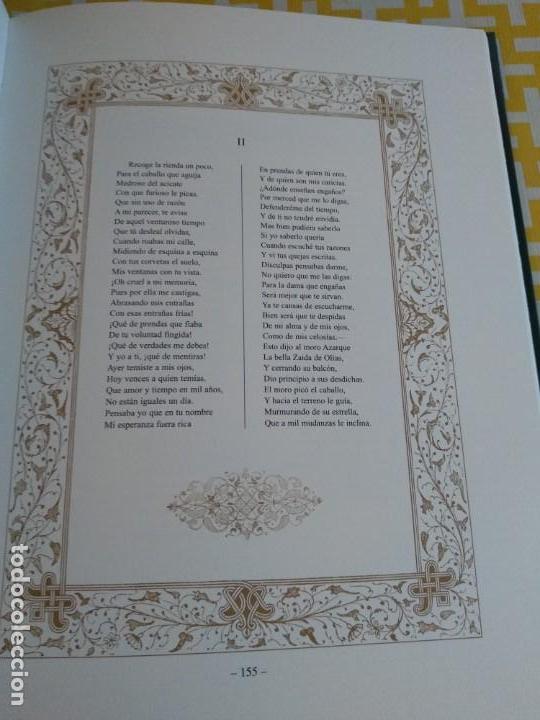 II
Recoge la rienda un poco,
Para el caballo que aguija
Medroso del acicate
Con que furioso le picas,
Que sin uso de razón
A mi parecer, te avisa
De aquel venturoso tiempo
Que tú desleal olvidas,
Cuando ruabas mi calle,
Midiendo de esquina a esquina
Con tus corvetas el suelo,
Mis ventanas con tu vista.
¡Oh cruel a mi memoria,
Pues por ella me castigas,
Abrasando mis entrañas
Con esas entrañas frías!
¡Qué de prendas que fiaba
De tu voluntad fingida!
¡Qué de verdades me debes!
Y yo a ti, ¡qué de mentiras!
Ayer temiste a mis ojos,
Hoy vences a quien temías,
Que amor y tiempo en mil años,
No están iguales un día.
Pensaba yo que en tu nombre
Mi esperanza fuera rica
En prendas de quien tú eres,
Y de quien son mis caricias.
¿Adónde enseñan engaños?
Por merced que me lo digas,
Defenderéme del tiempo,
Y de ti no tendré envidia.
Mas bien pudiera saberlo
Si yo saberlo quería
Cuando escuché tus razones
Y vi tus quejas escritas.
Disculpas pensabas darme,
No quiero que me las digas.
Para la dama que engañas
Será mejor que te sirvan.
Ya te cansas de escucharme,
Bien será que te despidas
De mi alma y de mis ojos,
Como de mis celosías.—
Esto dijo al moro Azarque
La bella Zaida de Olías,
Y cerrando su balcón,
Dio principio a sus desdichas.
El moro picó el caballo,
Y hacia el terreno le guía,
Murmurando de su estrella,
Que a mil mudanzas le inclina.
– 155 –
todocoleccion.net